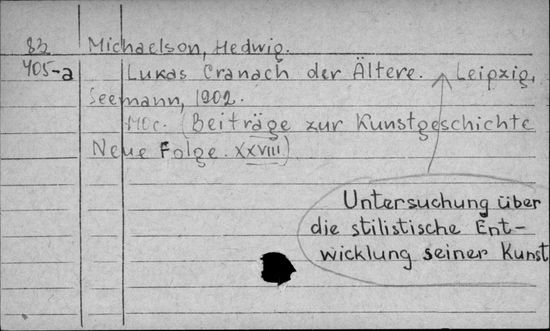 83 Michaelson, Hedwig.
405-a Lukas Cranach der Ältere. Leipzig,
Seemann, 1902.
(Beiträge zur Kunstgeschichte
Neue Folge. XXVIII)
Untersuchung über
die stilistische Ent-
wicklung seiner Kunst